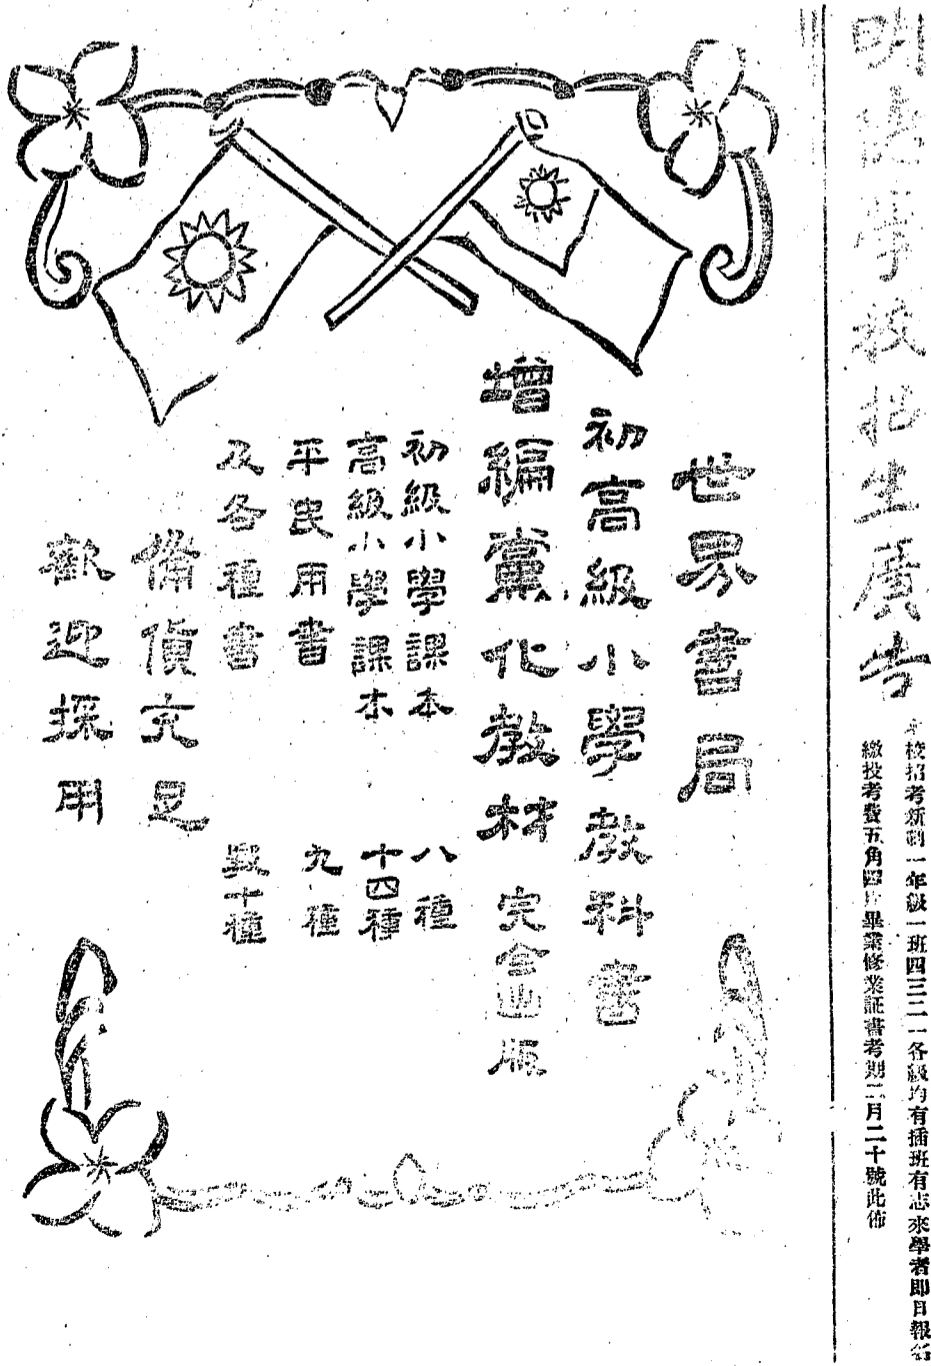 明德學校招生廣告
本校招考新制一年級一班四三二一各級均有插班有志來學者即日報名
繳投考費五角四片畢業修業証書考期二月二十號此佈
世界書局
初高級小學教科書
增編黨化教材 完全出版
初級小學課本 八種
高級小學課本 十四種
平民用書 九種
及各種書 數十種
備貨充足
歡迎採用